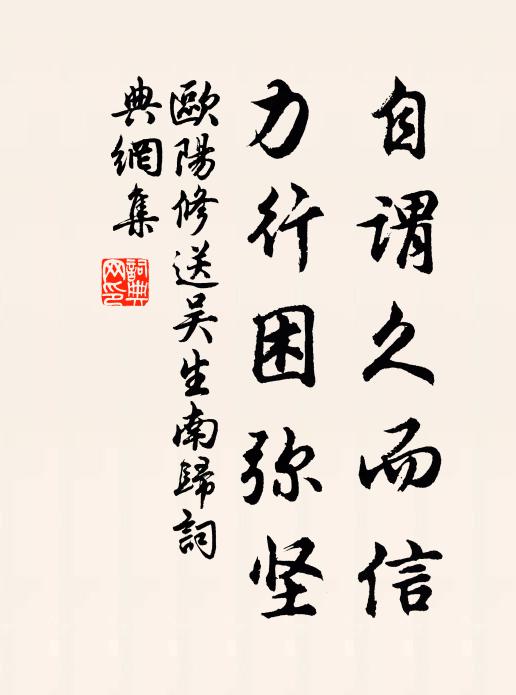 自谓久而信
力行困弥坚
歐陽修送吴生南歸詞
典網集
詞典网印